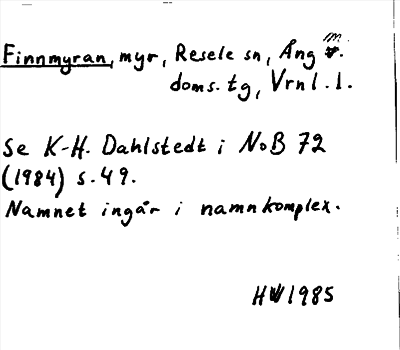 Finnmyran, myr, Resele sn, Ång m.
doms.tg, Vrnl. l.
Se K-H. Dahlstedt i NoB 72
(1984) s. 49.
Namnet ingår i namnkomplex.
HW 1985